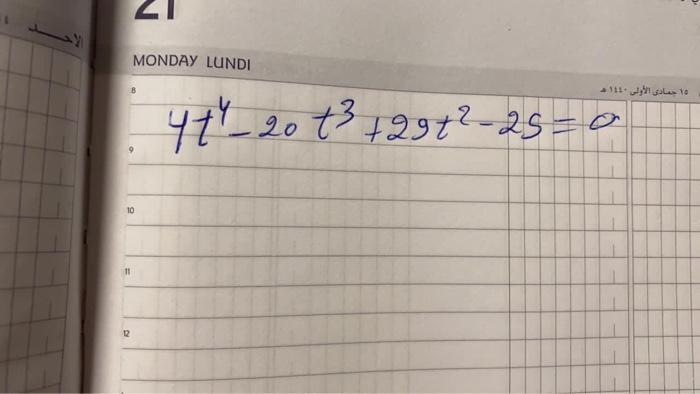 21
الأحد
MONDAY LUNDI
١٥ جمادى الأولى ١٤٤٠ هـ
8
4t⁴ - 20t³ + 29t² - 25 = 0
9
10
11
12